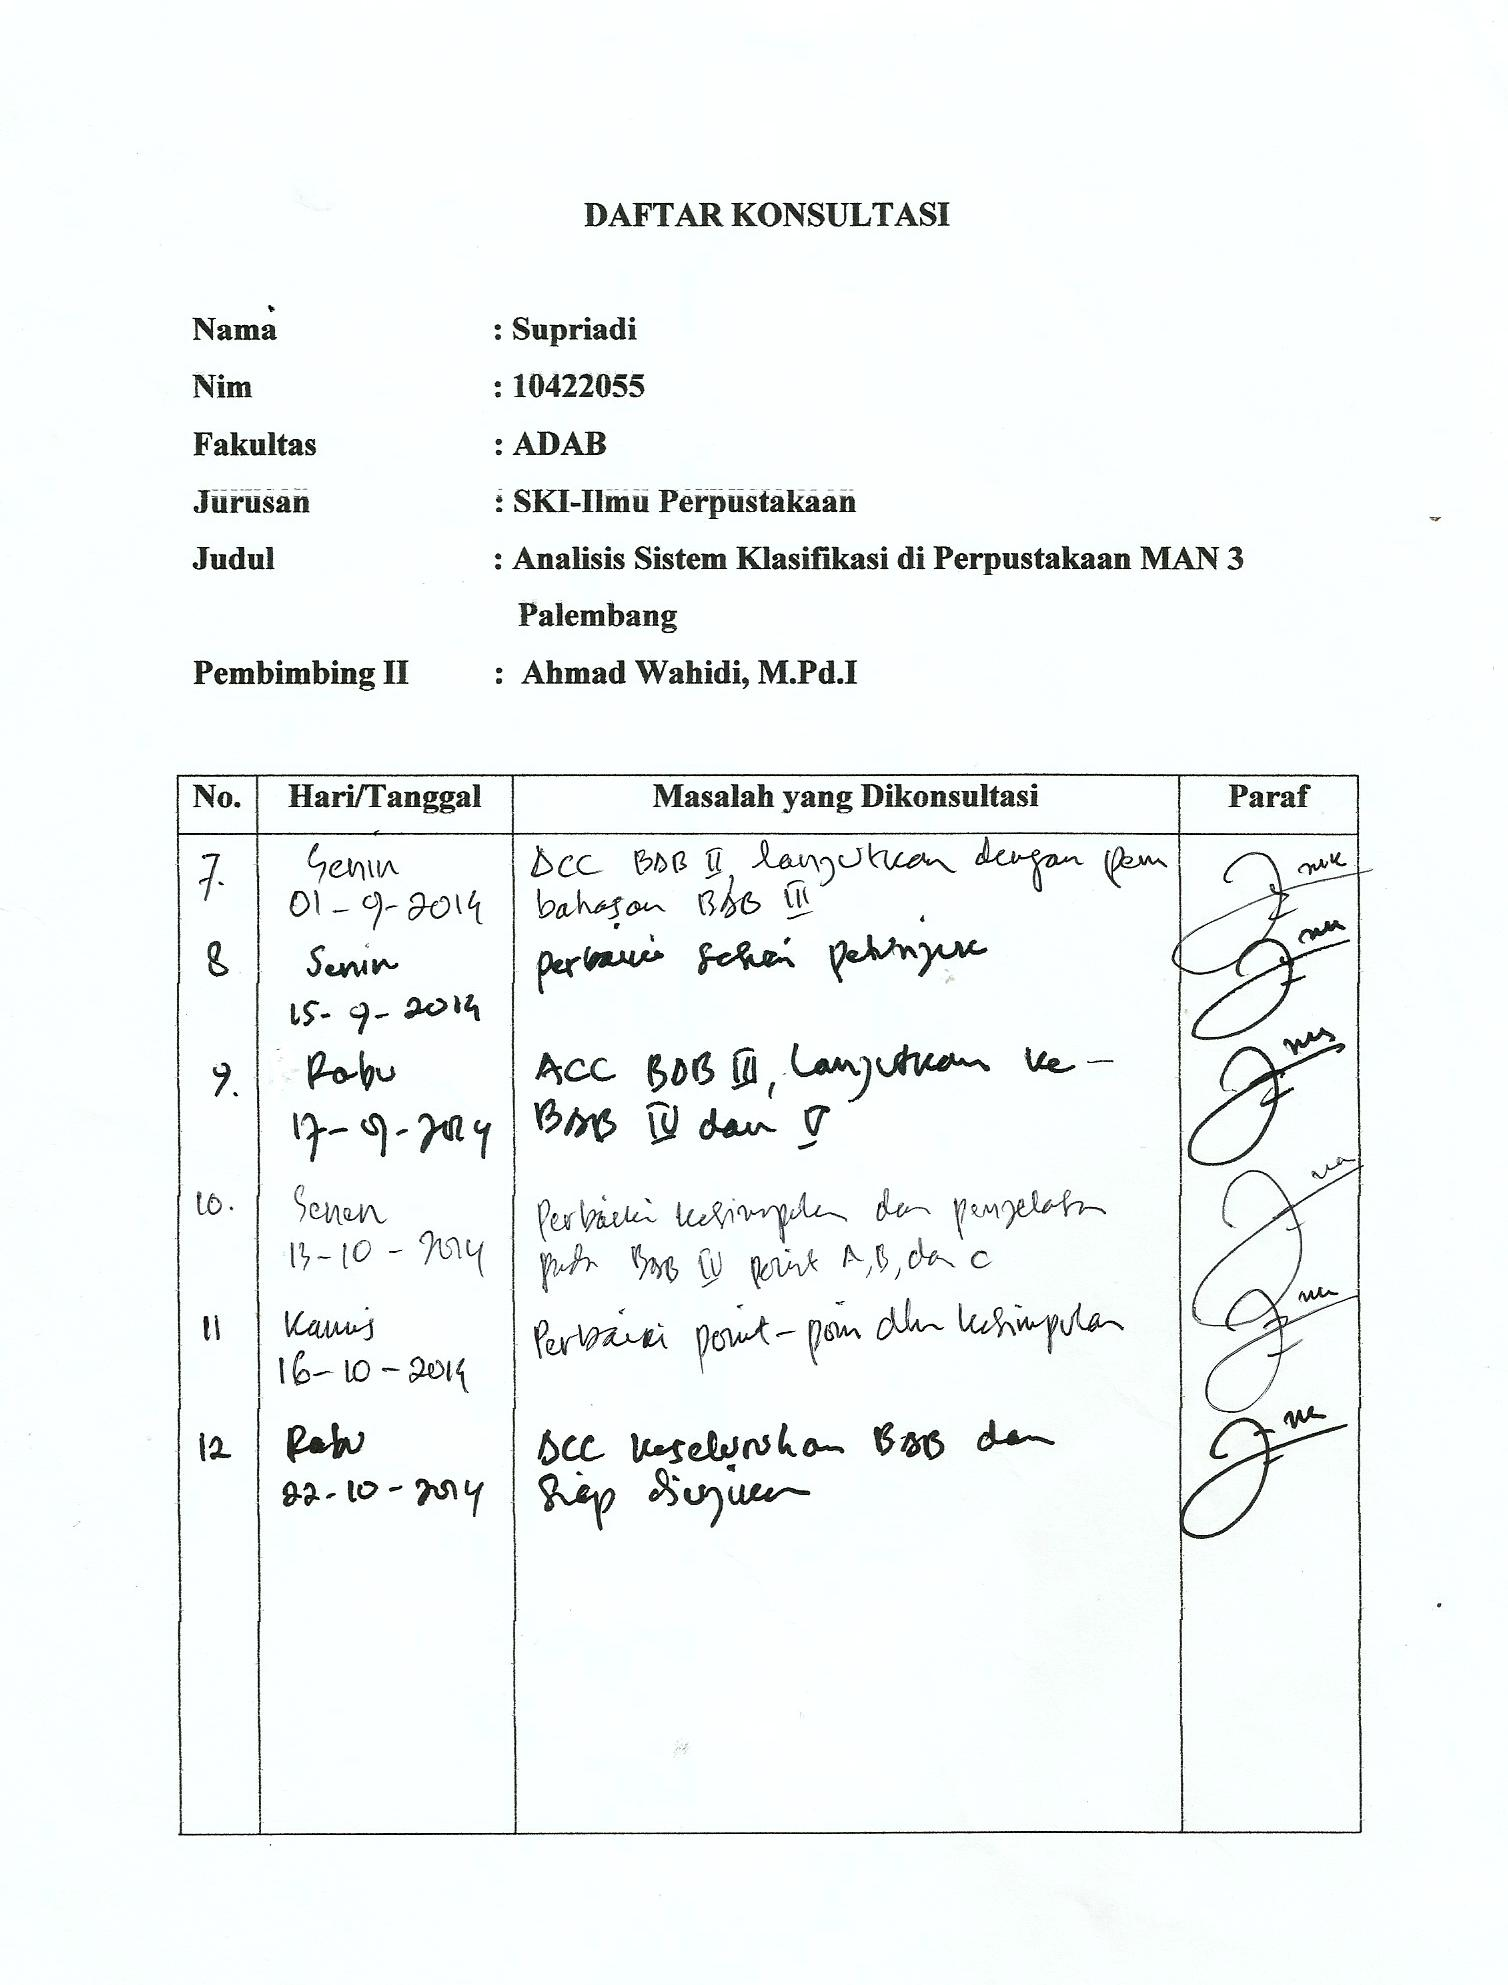 DAFTAR KONSULTASI
Nama : Supriadi
Nim : 10422055
Fakultas : ADAB
Jurusan : SKI-Ilmu Perpustakaan
Judul : Analisis Sistem Klasifikasi di Perpustakaan MAN 3
Palembang
Pembimbing II : Ahmad Wahidi, M.Pd.I
No. Hari/Tanggal Masalah yang Dikonsultasi Paraf
7. Senin ACC BAB II, lanjutkan dengan pem
01-9-2014 bahasan BAB III
8 Senin perbaiki sesuai petunjuk
15-9-2014
9. Rabu ACC BAB III, lanjutkan ke-
17-09-2014 BAB IV dan V
10. Senen Perbaiki kesimpulan dan penjelasan
13-10-2014 pada BAB IV point A, B, dan C
11 Kamis Perbaiki point-poin dlm kesimpulan
16-10-2014
12 Rabu ACC keseluruhan BAB dan
22-10-2014 Siap diujikan